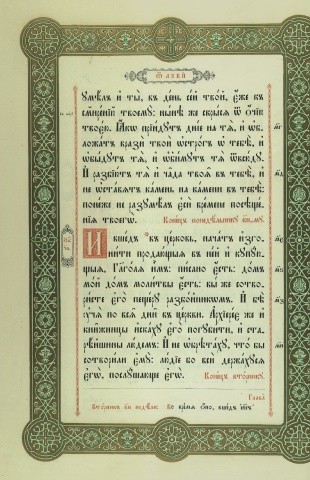 Ѿ ЛꙋКИ
ꙋмѣлъ и҆ ты̀, въ де́нь се́й тво́й, є҆́же къ
смире́нїю твоемꙋ̀: ны́нѣ же скры́сѧ ѿ ѻ҆́чїю
твоє́ю. Ꙗ҆́кѡ прїи́дꙋтъ дні́е на тѧ̀, и҆ ѡ҆б-
ложа́тъ вразѝ твоѝ ѻ҆стро́гъ ѡ҆ тебѣ̀, и҆
ѡ҆бы́дꙋтъ тѧ̀, и҆ ѡ҆б̾и́мꙋтъ тѧ̀ ѿвсю́дꙋ.
И҆ разбїю́тъ тѧ̀ и҆ ча̑да твоѧ̑ въ тебѣ̀, и҆
не ѡ҆ста́вѧтъ ка́мень на ка́мени въ тебѣ̀:
поне́же не разꙋмѣ́лъ є҆сѝ вре́мени посѣще́-
нїѧ твоегѡ̀. Коне́цъ понедѣ́льникꙋ
И҆ вше́дъ въ це́рковь, нача́тъ и҆зго-
ни́ти продаю́щыѧ въ не́й и҆ кꙋпꙋ́ю-
щыѧ, Глаго́лѧ и҆̀мъ: пи́сано є҆́сть: до́мъ
мо́й до́мъ моли́твы є҆́сть: вы́ же сотво-
ри́сте є҆го̀ пеще́рꙋ разбо́йникѡмъ. И҆ бѣ̀
ᲂу҆чѧ̀ по всѧ̑ дни̑ въ це́ркви. А҆рхїере́є же и҆
кни́жницы и҆ска́хꙋ є҆го̀ погꙋби́ти, и҆ ста-
рѣ̑йшины лю́демъ. И҆ не ѡ҆брѣта́хꙋ, что̀ бы
сотвори́ли є҆мꙋ̀: лю́дїе бо всѝ держа́хꙋсѧ
є҆гѡ̀, послꙋ́шающе є҆гѡ̀. Коне́цъ вто́рникꙋ.
Глава̀
Во вре́мѧ ѻ҆́но, вше́дъ і҆и҃съ